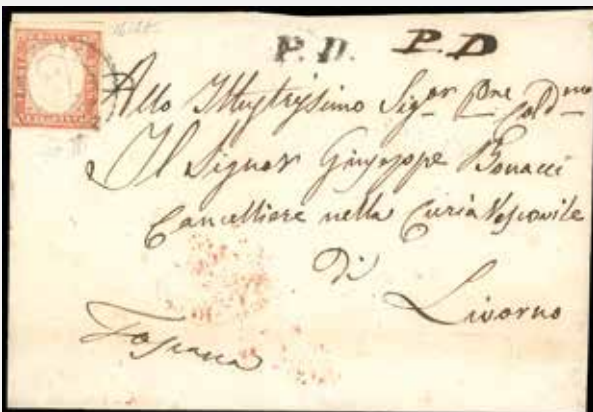 P.D. P.D
Allo Illustrissimo Sig.or Pne Cold.mo
Il Signor Giuseppe Bonacci
Cancelliere nella Curia Vescovile
di
Livorno
Toscana